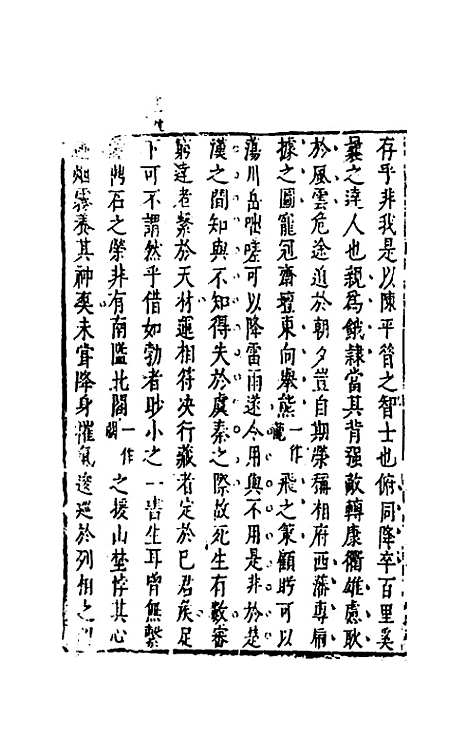 存乎非我是以陳平昔之智士也俯同降卒百里奚
曩之達人也親爲餓隸當其背强敵轉康衢雄慮耿
於風雲危途迫於朝夕豈自期榮稱相府西藩專扃
據之圖寵冠齋壇東向舉熊一作罷飛之策顧眄可以
蕩川岳咄嗟可以降雷雨遂令用與不用是非於楚
漢之間知與不知得失於虞秦之際故死生有數審
窮達者繫於天材運相符决行藏者定於已君侯足
下可不謂然乎借如勃者眇小之一書生耳曾無擊
鐘鼎石之榮非有南隣北閣一作閭之援山埜悖其心
煙霞養其神爽未嘗降身摧氣逡巡於列相之